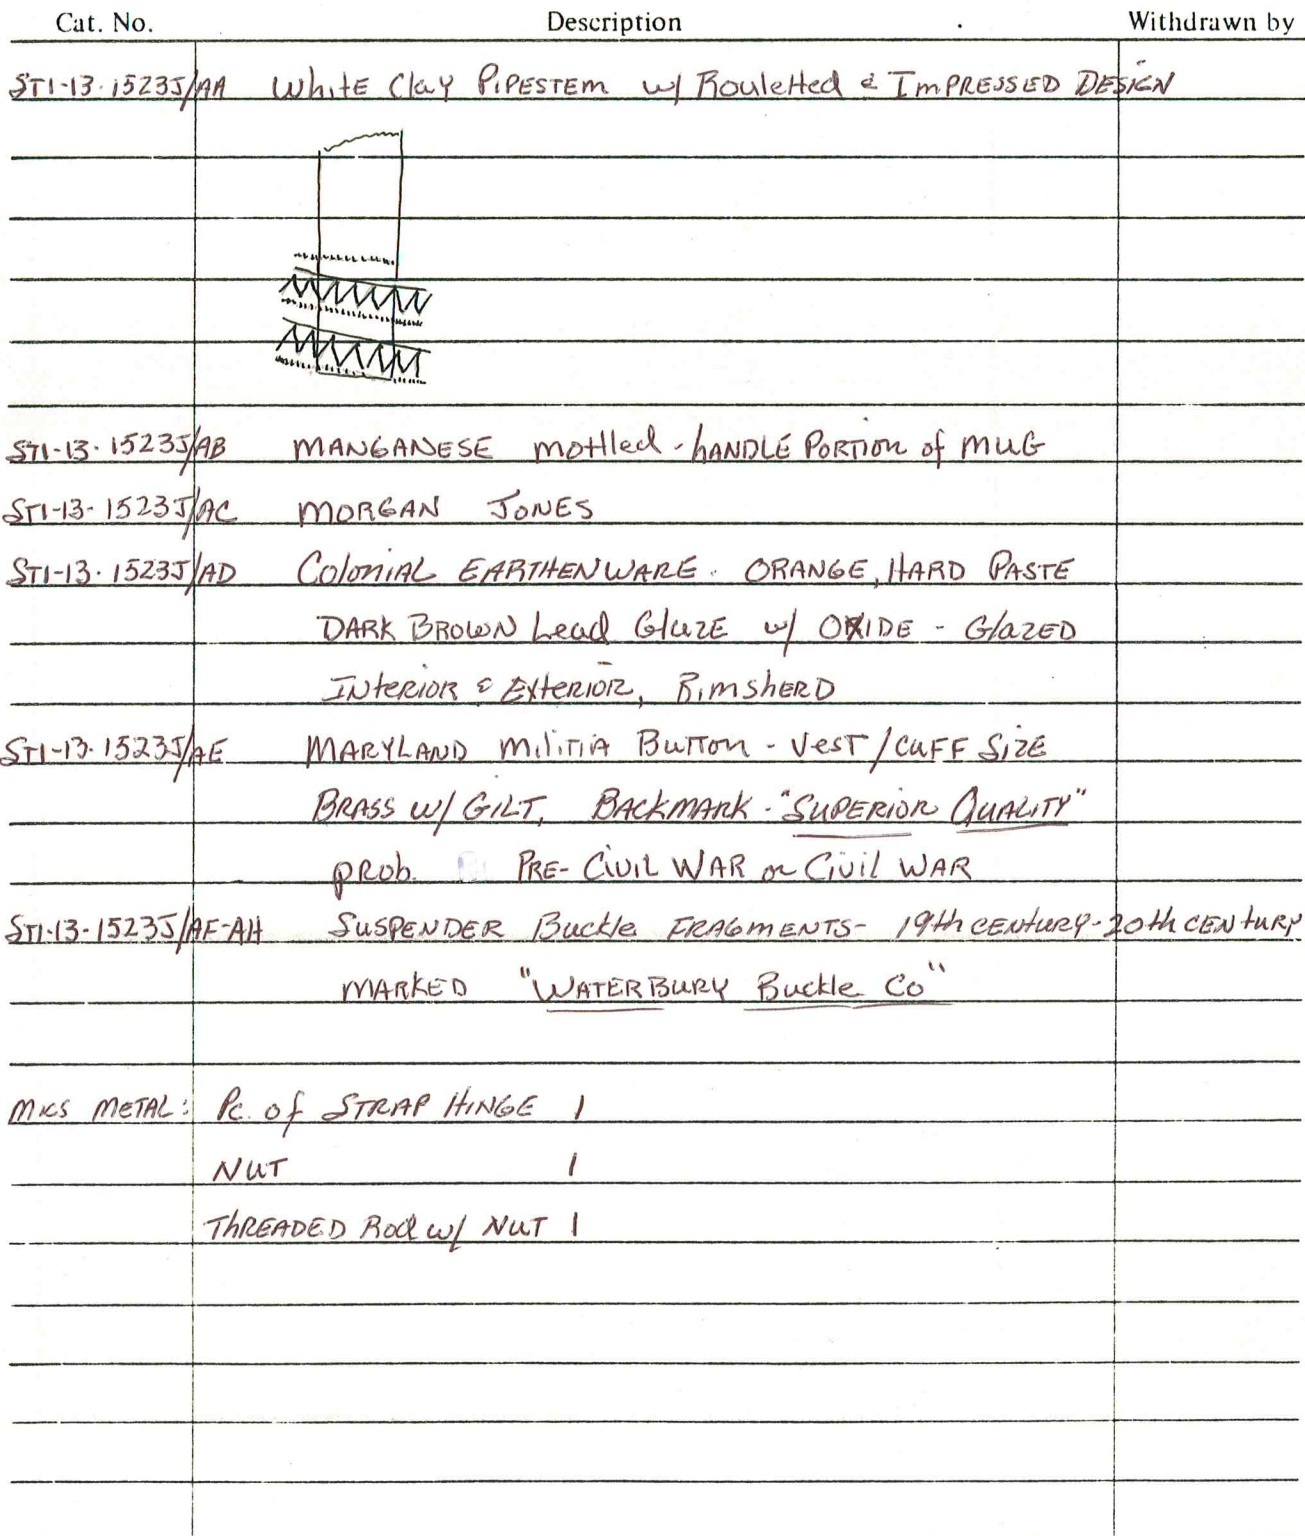 Cat. No. Description Withdrawn by
ST1-13-1523J/AA White Clay Pipestem w/ Rouletted & Impressed Design
ST1-13-1523J/AB Manganese mottled - handle portion of mug
ST1-13-1523J/AC Morgan Jones
ST1-13-1523J/AD Colonial Earthenware. Orange, Hard Paste
Dark Brown Lead Glaze w/ Oxide - Glazed
Interior & Exterior, Rimsherd
ST1-13-1523J/AE Maryland Militia Button - Vest/Cuff Size
Brass w/ Gilt, Backmark - "Superior Quality"
prob. Pre-Civil War or Civil War
ST1-13-1523J/AF-AH Suspender Buckle Fragments - 19th century-20th century
marked "Waterbury Buckle Co"
Mics Metal: Pc. of Strap Hinge 1
Nut 1
Threaded Rod w/ Nut 1